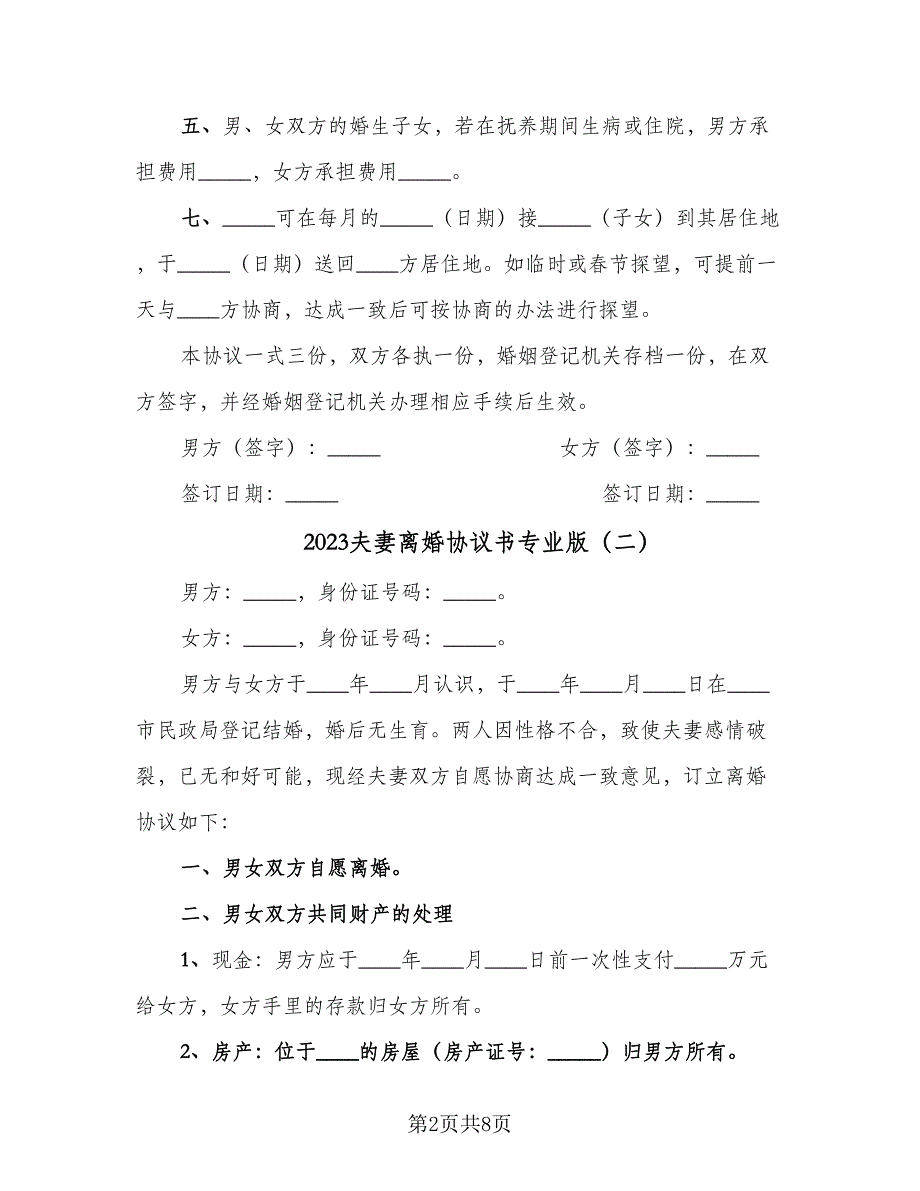 五、男、女双方的婚生子女，若在抚养期间生病或住院，男方承
担费用_____，女方承担费用_____。
七、_____可在每月的_____（日期）接_____（子女）到其居住地
，于_____（日期）送回____方居住地。如临时或春节探望，可提前一
天与____方协商，达成一致后可按协商的办法进行探望。
本协议一式三份，双方各执一份，婚姻登记机关存档一份，在双
方签字，并经婚姻登记机关办理相应手续后生效。
男方（签字）：_____ 女方（签字）：_____
签订日期：_____ 签订日期：_____
2023夫妻离婚协议书专业版（二）
男方：_____，身份证号码：_____。
女方：_____，身份证号码：_____。
男方与女方于____年____月认识，于____年____月____日在____
市民政局登记结婚，婚后无生育。两人因性格不合，致使夫妻感情破
裂，已无和好可能，现经夫妻双方自愿协商达成一致意见，订立离婚
协议如下：
一、男女双方自愿离婚。
二、男女双方共同财产的处理
1、现金：男方应于____年____月____日前一次性支付_____万元
给女方，女方手里的存款归女方所有。
2、房产：位于____的房屋（房产证号：_____）归男方所有。
第2页共8页